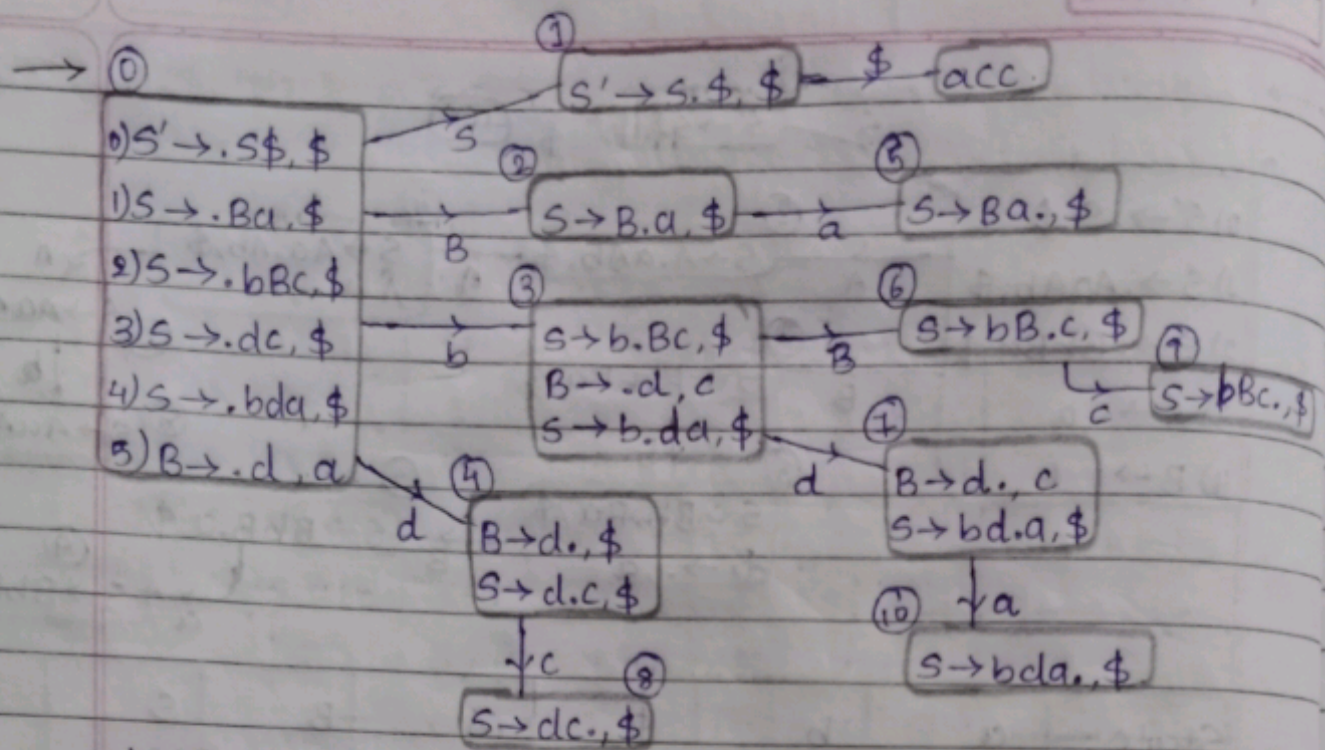 → 0
0)S' → .S$, $
1)S → .Ba, $
2)S → .bBc, $
3)S → .dc, $
4)S → .bda, $
5)B → .d, a
S
1
S' → S.$, $
$
acc
B
2
S → B.a, $
a
5
S → Ba., $
b
3
S → b.Bc, $
B → .d, c
S → b.da, $
B
6
S → bB.c, $
c
9
S → bBc., $
d
7
B → d., c
S → bd.a, $
a
10
S → bda., $
d
4
B → d., $
S → d.c, $
c
8
S → dc., $